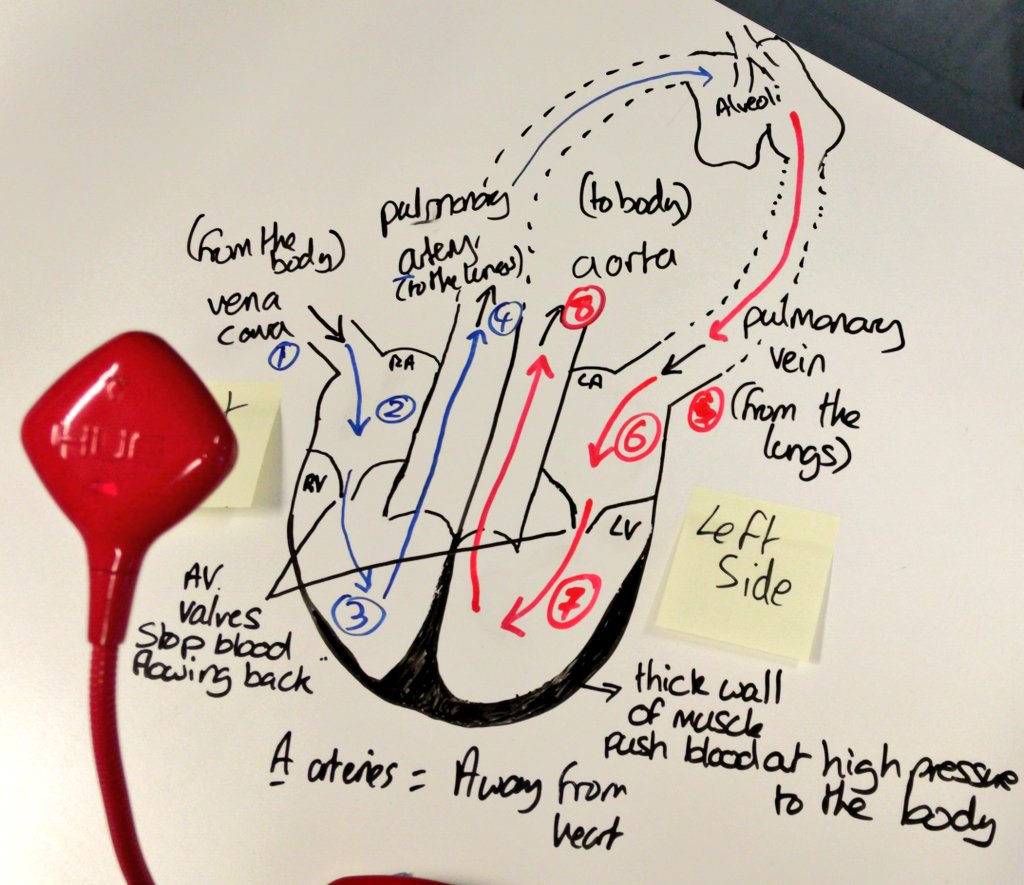 Alveoli
(to body)
pulmonary
artery
(to the lungs)
(from the
body)
vena
cava
1
aorta
8
4
RA
2
LA
pulmonary
vein
5
(from the
lungs)
6
RV
LV
Left
Side
3
7
AV.
valves
Stop blood
flowing back
thick wall
of muscle
push blood at high pressure
to the body
A arteries = Away from
heart